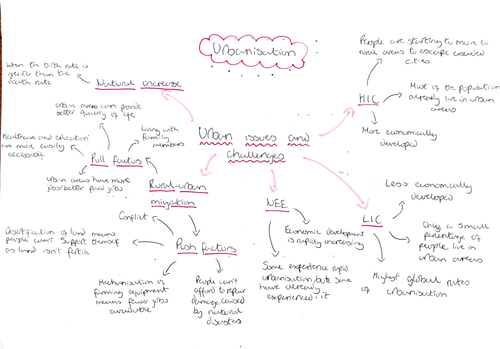 Urbanisation
Urban issues and
challenges
Natural increase
When the birth rate is
greater than the
death rate
Rural-urban
migration
Pull factors
Urban areas can provide
better quality of life
Healthcare and education
are more easily
accessible
Living with
family
members
Urban areas have more
jobs/better paid jobs
Push factors
Conflict
Desertification of land means
people can't support themself
as land isn't fertile
Mechanisation of
farming equipment
means fewer jobs
available
People can't
afford to repair
damage caused
by natural
disasters
NEE
Economic development
is rapidly increasing
Some experience rapid
urbanisation but some
have already
experienced it
LIC
Less economically
developed
Only a small
percentage of
people live in
urban areas
Highest global rates
of urbanisation
HIC
People are starting to move to
rural areas to escape crowded
cities
Most of the population
already live in urban
areas
More economically
developed